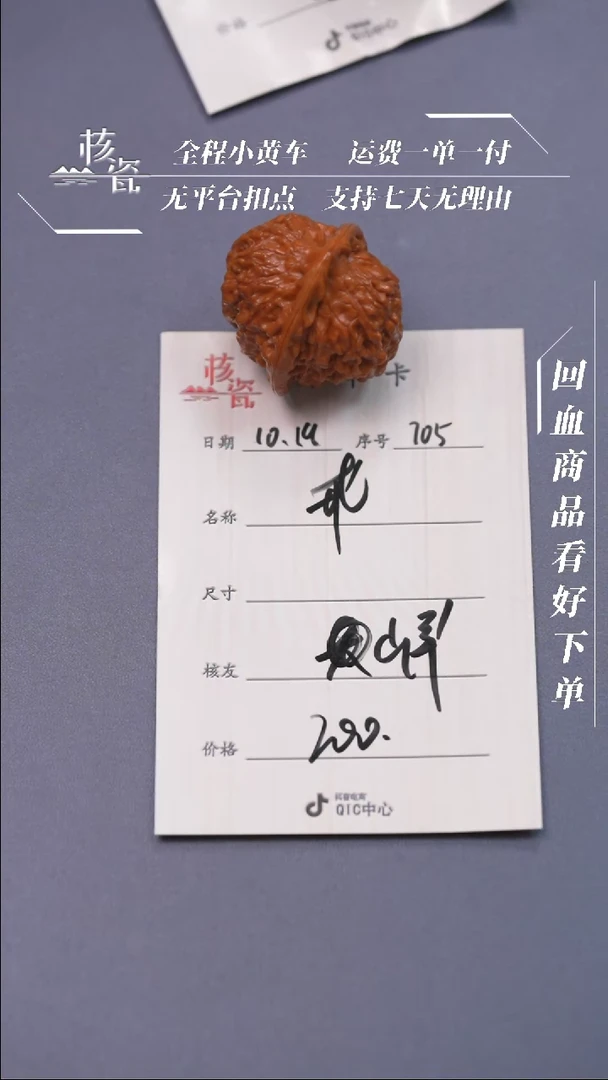 价格
QIC中心
核瓷
全程小黄车 运费一单一付
无平台扣点 支持七天无理由
回血商品看好下单
核瓷
卡
日期 10.19 序号 705
名称
尺寸
核友
价格 200.
抖音电商
QIC中心